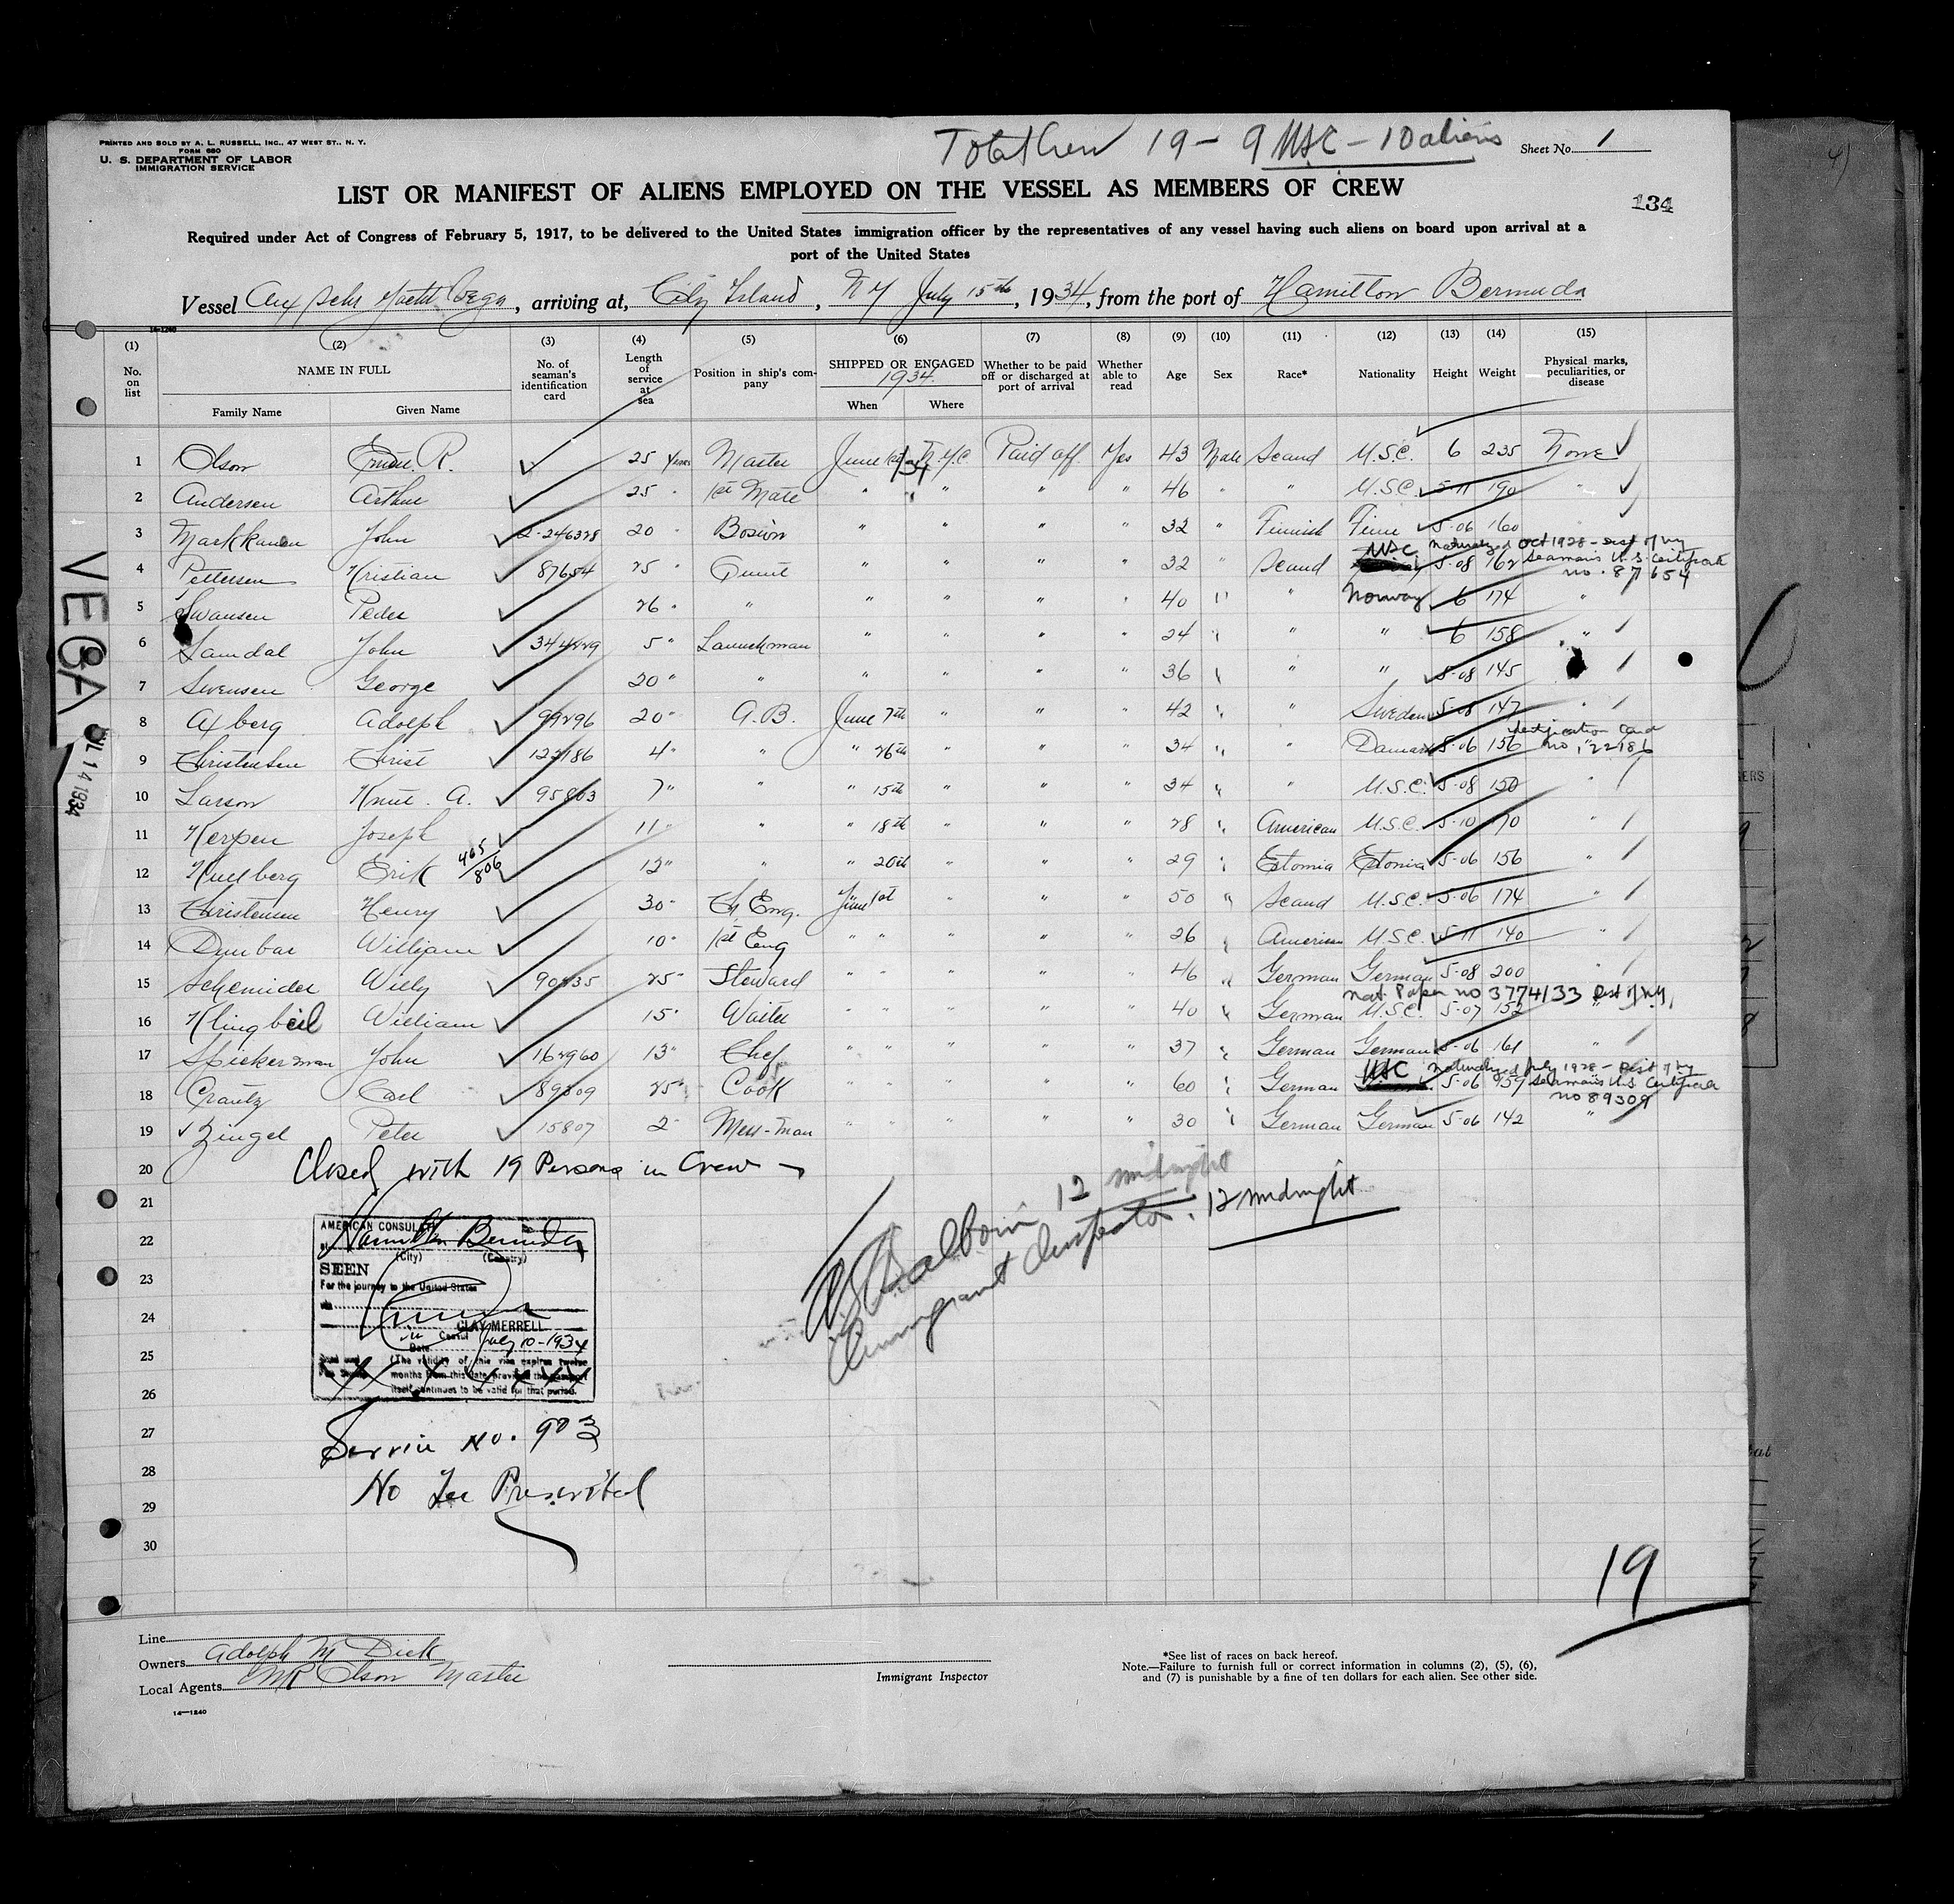 PRINTED AND SOLD BY A. L. RUSSELL, INC., 47 WEST ST., N. Y.
FORM 680
U. S. DEPARTMENT OF LABOR
IMMIGRATION SERVICE
Total Crew 19 - 9 USC - 10 aliens
Sheet No. 1
LIST OR MANIFEST OF ALIENS EMPLOYED ON THE VESSEL AS MEMBERS OF CREW
134
Required under Act of Congress of February 5, 1917, to be delivered to the United States immigration officer by the representatives of any vessel having such aliens on board upon arrival at a
port of the United States
Vessel Aux Schr Yacht Vega, arriving at, City Island, N Y July 15th, 1934, from the port of Hamilton Bermuda
14-1240
(1) (2) (3) (4) (5) (6) (7) (8) (9) (10) (11) (12) (13) (14) (15)
No. on list NAME IN FULL No. of seaman's identification card Length of service at sea Position in ship's company SHIPPED OR ENGAGED 1934 Whether to be paid off or discharged at port of arrival Whether able to read Age Sex Race* Nationality Height Weight Physical marks, peculiarities, or disease
Family Name Given Name When Where
1 Olson R. 25 years Master June 1st N.Y.C Paid off Yes 43 Male Scand U.S.C. 6 235 None
2 Andersen Arthur 25 " 1st Mate " " " " 46 " " U.S.C. 5-11 190 "
3 Markkanen John 2-246378 20 " Bosun " " " " 32 " Finnish Finn 5-06 160
USC naturalized Oct 1928 - Dist of NY
4 Pettersen Kristian 87654 25 " " " " " 32 " Scand 5-08 162 Seamans U.S. Certificate
no. 87654
5 Swansen Peder 26 " " " " " " 40 " " Norway 6 174 "
6 Lamdal John 344229 5 " Launchman " " " " 24 " " " 6 158 "
7 Svensen George 20 " " " " " " 36 " " " 5-08 145
8 Axberg Adolph 99296 20 " A.B. June 7th " " " 42 " Sweden 5-08 147 "
Identification Card
9 Christensen Christ 122186 4 " " " 26th " " " 34 " " Danmark 5-06 156 no 122186
10 Larson Knut. A. 95803 7 " " " 15th " " " 34 " " U.S.C. 5-08 150 "
11 Kerpen Joseph 11 " " " 18th " " " 28 " American U.S.C. 5-10 170 "
465/806
12 Kullberg Erik 12 " " " 20th " " " 29 " Estonia Estonia 5-06 156 "
13 Christensen Henry 30 " Ch Eng. June 1st " " " 50 " Scand U.S.C. 5-06 174 "
14 Dunbar William 10 " 1st Eng " " " " " 26 " American U.S.C. 5-11 140 "
15 Schemider Willy 90435 25 " Steward " " " " " 46 " German German 5-08 200 "
nat. Paper no 3774133 Dist of N.Y.
16 Klingbeil William 15 " Waiter " " " " " 40 " German U.S.C. 5-07 152 "
17 Spickerman John 162960 13 " Chef " " " " " 37 " German German 5-06 161 "
USC naturalized July 1928 - Dist of NY
18 Crautz Carl 89309 25 " Cook " " " " " 60 " German 5-06 159 Seamans U.S. Certificate
no 89309
19 Zingel Peter 15807 2 " Mess-man " " " " " 30 " German German 5-06 142 "
20 Closed with 19 Persons in Crew
21
22
23
24
25
26
27
28
29
30
VEGA
JUL 14 1934
12 midnight
Baldwin
Immigrant Inspector. 12 midnight
AMERICAN CONSULATE
Hamilton Bermuda
(City) (Country)
SEEN
For the journey to the United States
via
CLAY MERRELL
Consul
Date July 10-1934
(The validity of this visa expires twelve
months from this date provided the passport
itself continues to be valid for that period.
Service No. 903
No Fee Prescribed
19
Line
Owners Adolph M Dick
Local Agents Olson Master
14-1240
Immigrant Inspector
*See list of races on back hereof.
Note.—Failure to furnish full or correct information in columns (2), (5), (6),
and (7) is punishable by a fine of ten dollars for each alien. See other side.